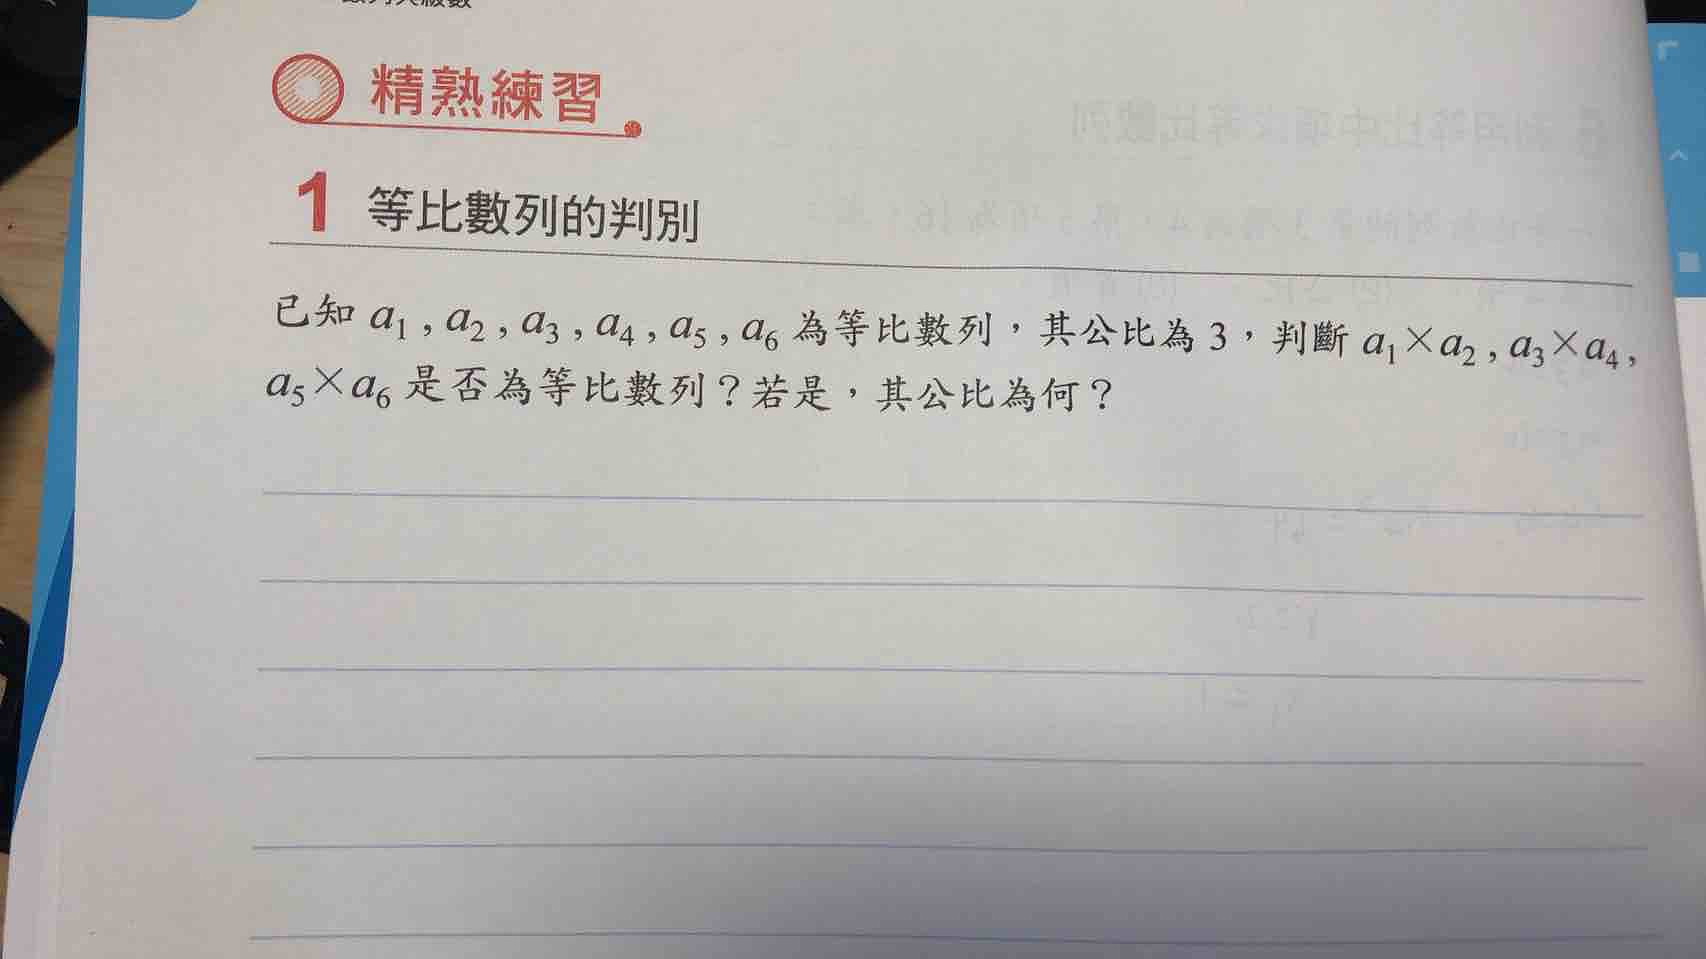 精熟練習
1 等比數列的判別
已知 a₁ , a₂ , a₃ , a₄ , a₅ , a₆ 為等比數列，其公比為 3，判斷 a₁×a₂ , a₃×a₄ ,
a₅×a₆ 是否為等比數列？若是，其公比為何？